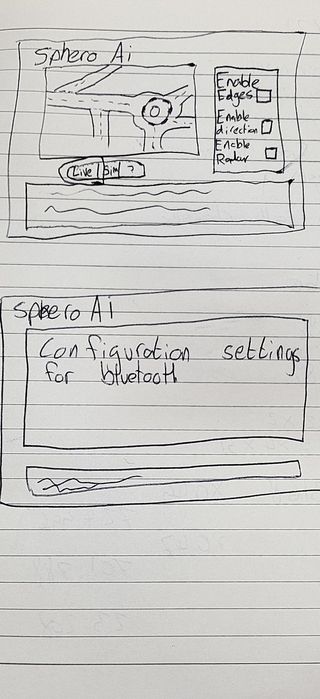 Sphero Ai
Enable
Edges
Enable
direction
Enable
Radar
Live | Sim ?
Sphero AI
Configuration settings
for bluetooth